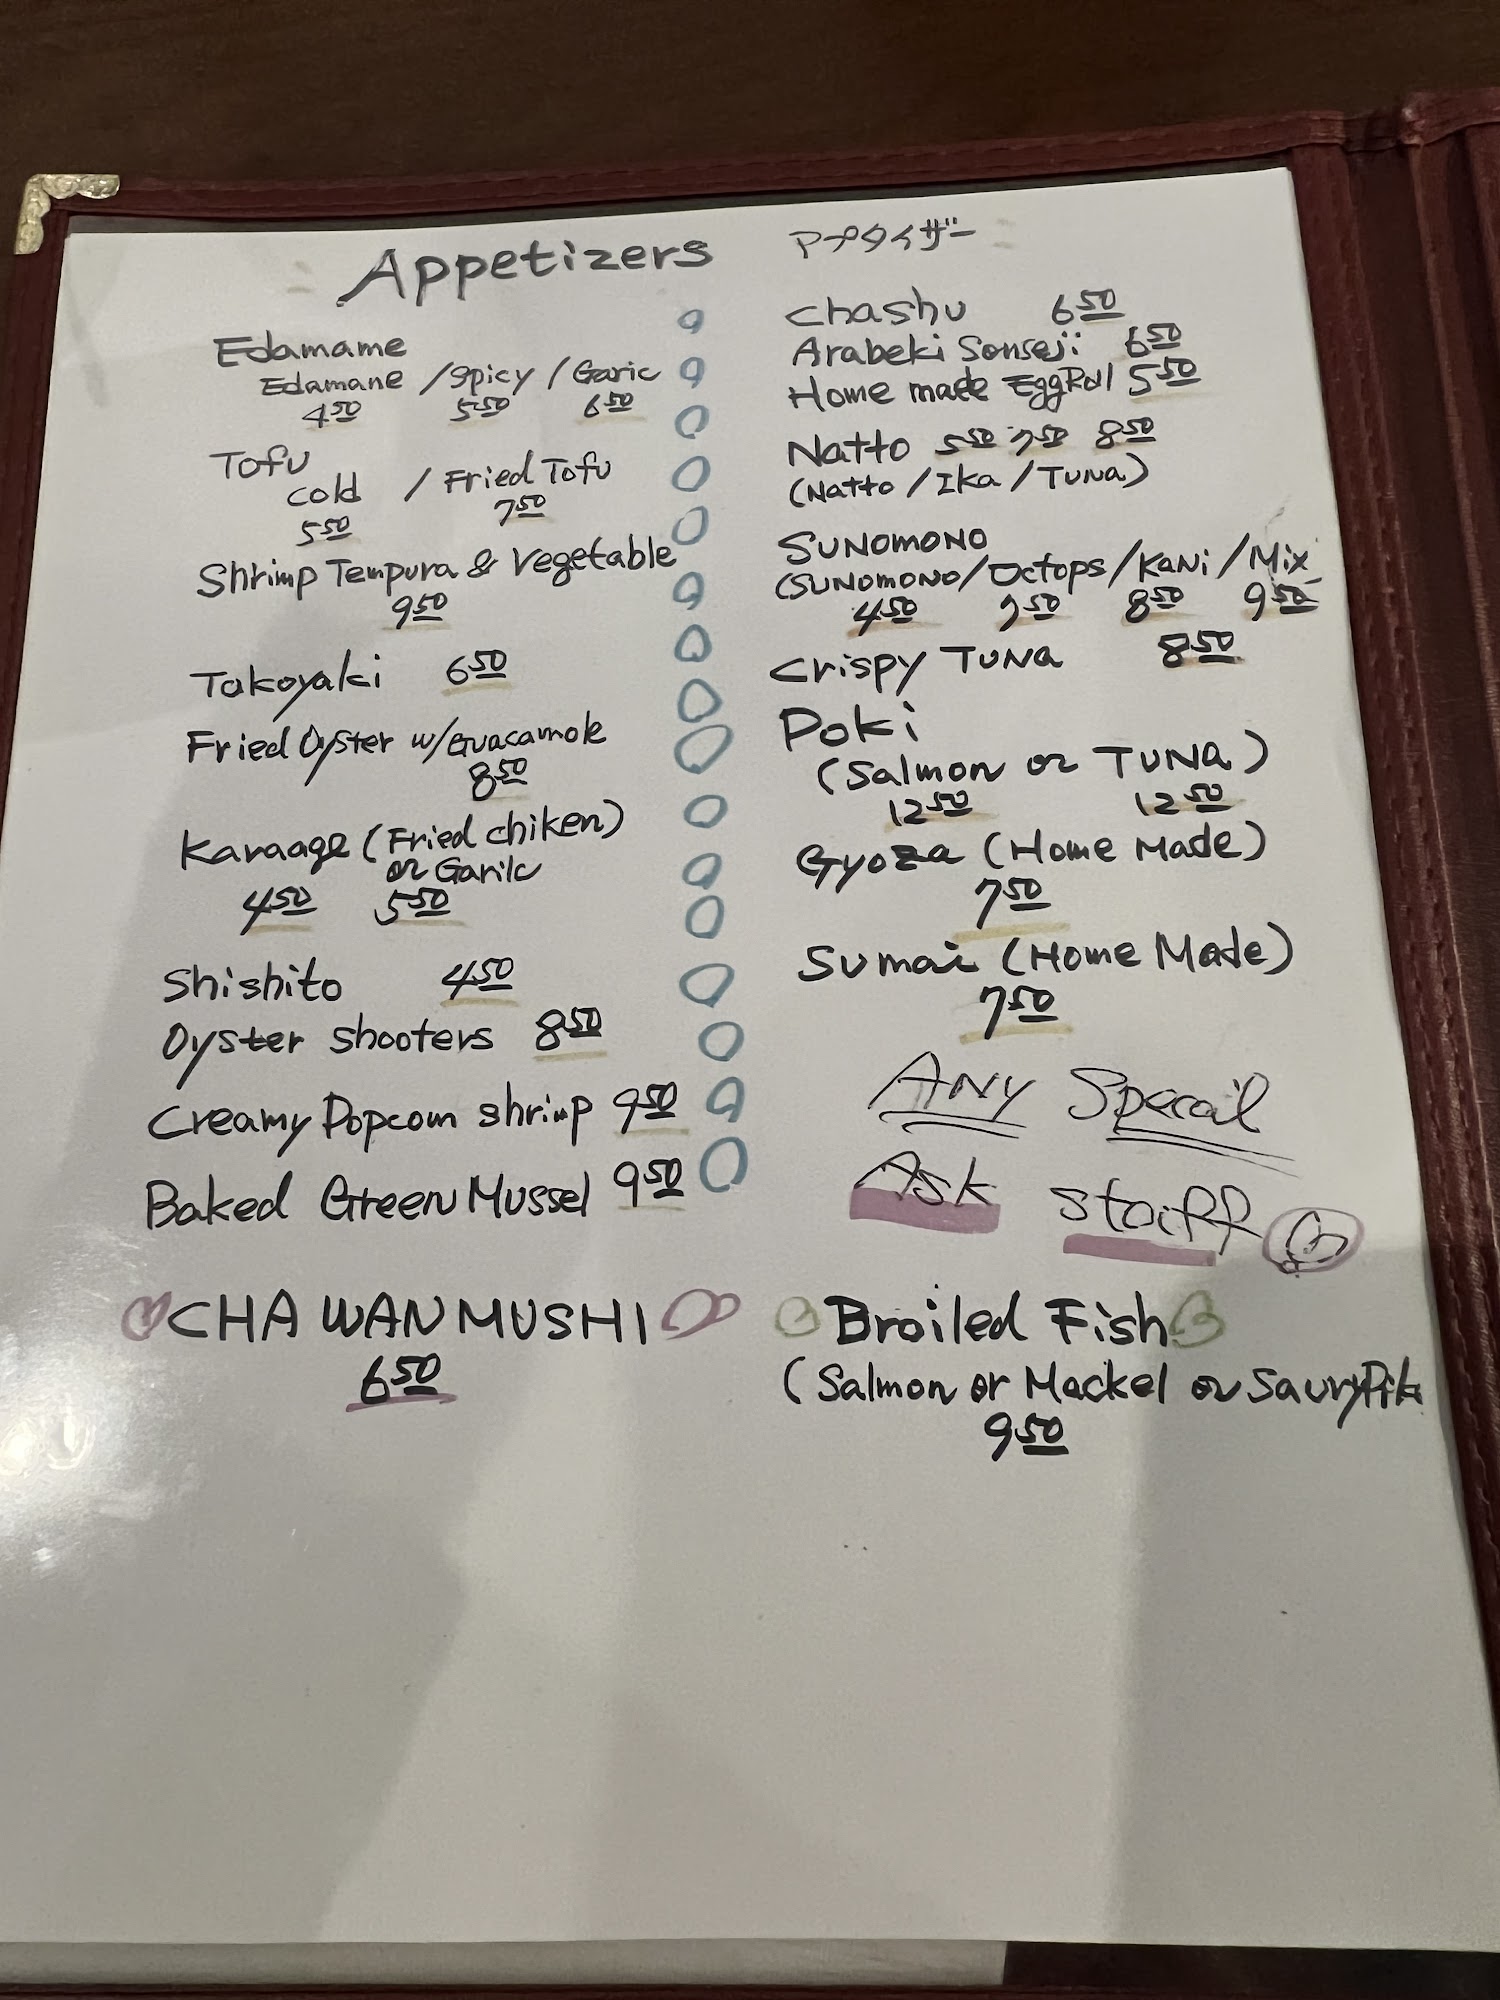 Appetizers アプタイザー
Edamame
Edamane / Spicy / Garic
4.50 5.50 6.50
Tofu
cold / Fried Tofu
5.50 7.50
Shrimp Tempura & Vegetable
9.50
Takoyaki 6.50
Fried Oyster w/Guacamole
8.50
Karaage (Fried chiken)
or Garilc
4.50 5.50
Shishito 4.50
Oyster shooters 8.50
Creamy Popcorn shrimp 9.50
Baked Green Mussel 9.50
CHAWANMUSHI
6.50
Chashu 6.50
Arabeki Sonseji 6.50
Home made EggRoll 5.50
Natto 5.50 7.50 8.50
(Natto / Ika / Tuna)
SUNOMONO
(SUNOMONO / Octops / Kani / Mix
4.50 7.50 8.50 9.50
Crispy TUNA 8.50
Poki
(Salmon or TUNA)
12.50 12.50
Gyoza (Home Made)
7.50
Sumai (Home Made)
7.50
ANY Specail
Ask staiff
Broiled Fish
(Salmon or Mackel or Saury
9.50